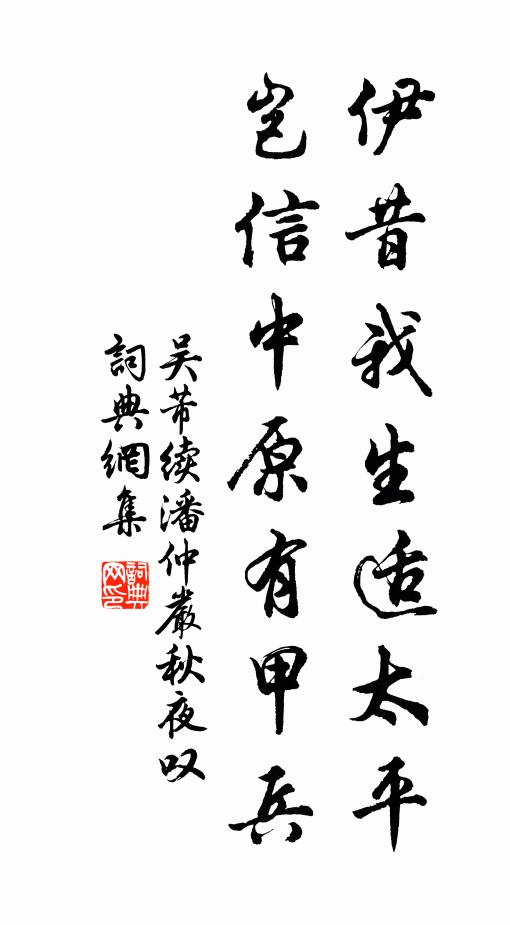 伊昔我生适太平
岂信中原有甲兵
吴芾续潘仲严秋夜叹
詞典網集
詞典网印